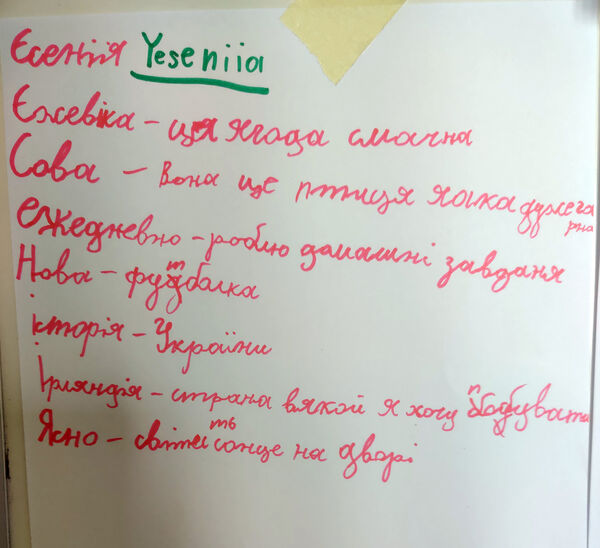 Єсенія Yeseniia
Єжевіка – ця ягода смачна
Сова – вона це птиця яака дужега
рна
ежедневно – роблю домашні завданя
Нова – футболка
історія – України
Ірляндія – страна вякой я хочу побувати
Ясно – світить сонце на дворі